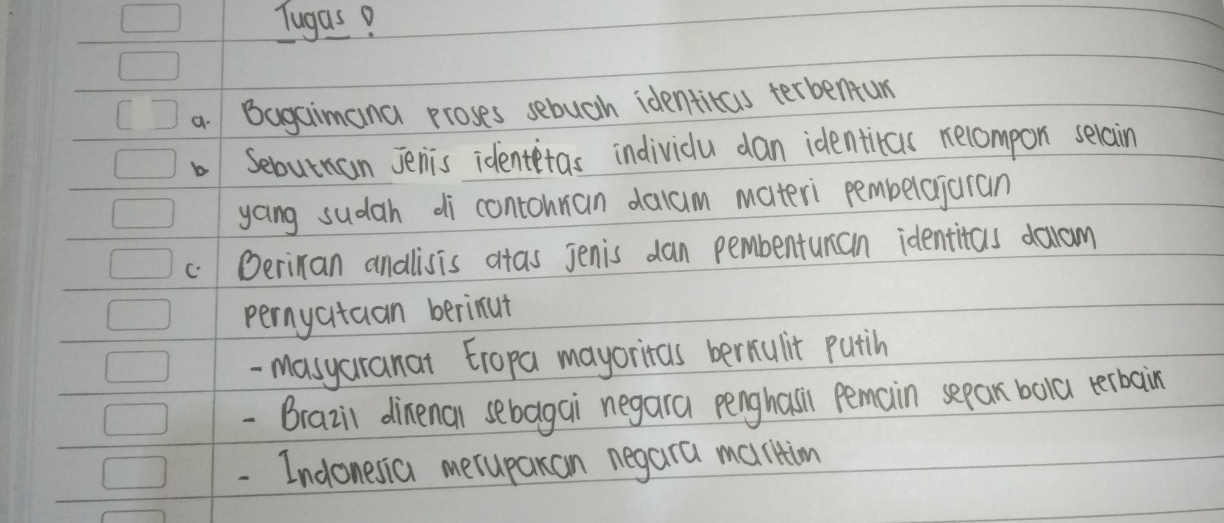 Tugas !
a. Bagaimana proses sebuah identitas terbentuk
b. Sebutkan jenis identetas individu dan identitas kelompok selain
yang sudah di contohkan dalam materi pembelajaran
c. Berikan analisis atas jenis dan pembentukan identitas dalam
pernyataan berikut
- Masyarakat Eropa mayoritas berkulit putih
- Brazil dikenal sebagai negara penghasil pemain sepak bola terbaik
- Indonesia merupakan negara maritim